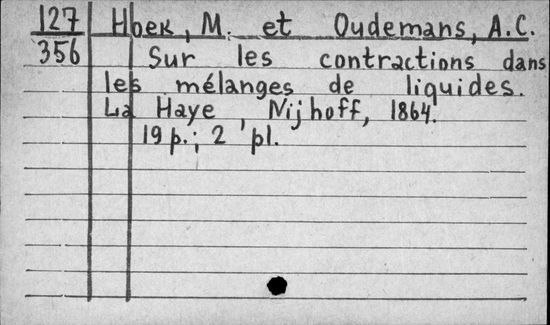 127 Hoek, M. et Oudemans, A.C.
356 Sur les contractions dans
les mélanges de liquides.
La Haye, Nijhoff, 1864.
19 p.; 2 pl.